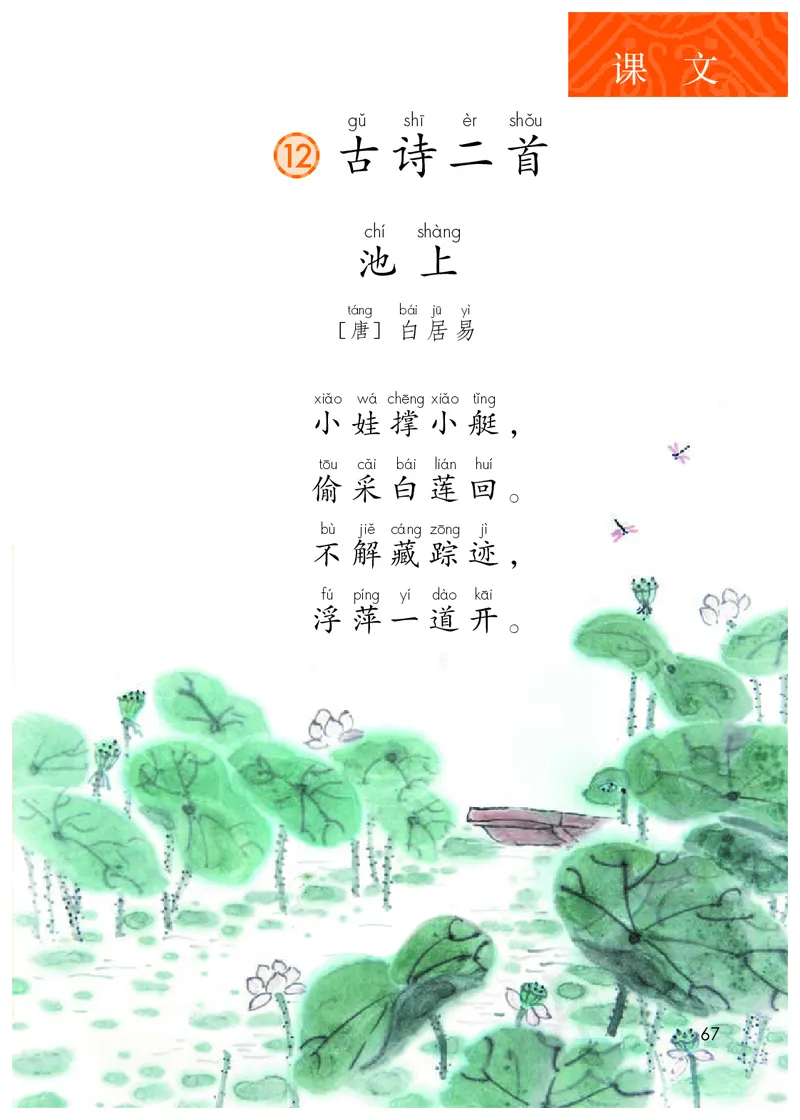 课 文
gǔ shī èr shǒu
12 古诗二首
chí shàng
池 上
táng bái jū yì
[唐] 白居易
xiǎo wá chēng xiǎo tǐng
小娃撑小艇，
tōu cǎi bái lián huí
偷采白莲回。
bù jiě cáng zōng jì
不解藏踪迹，
fú píng yí dào kāi
浮萍一道开。
67